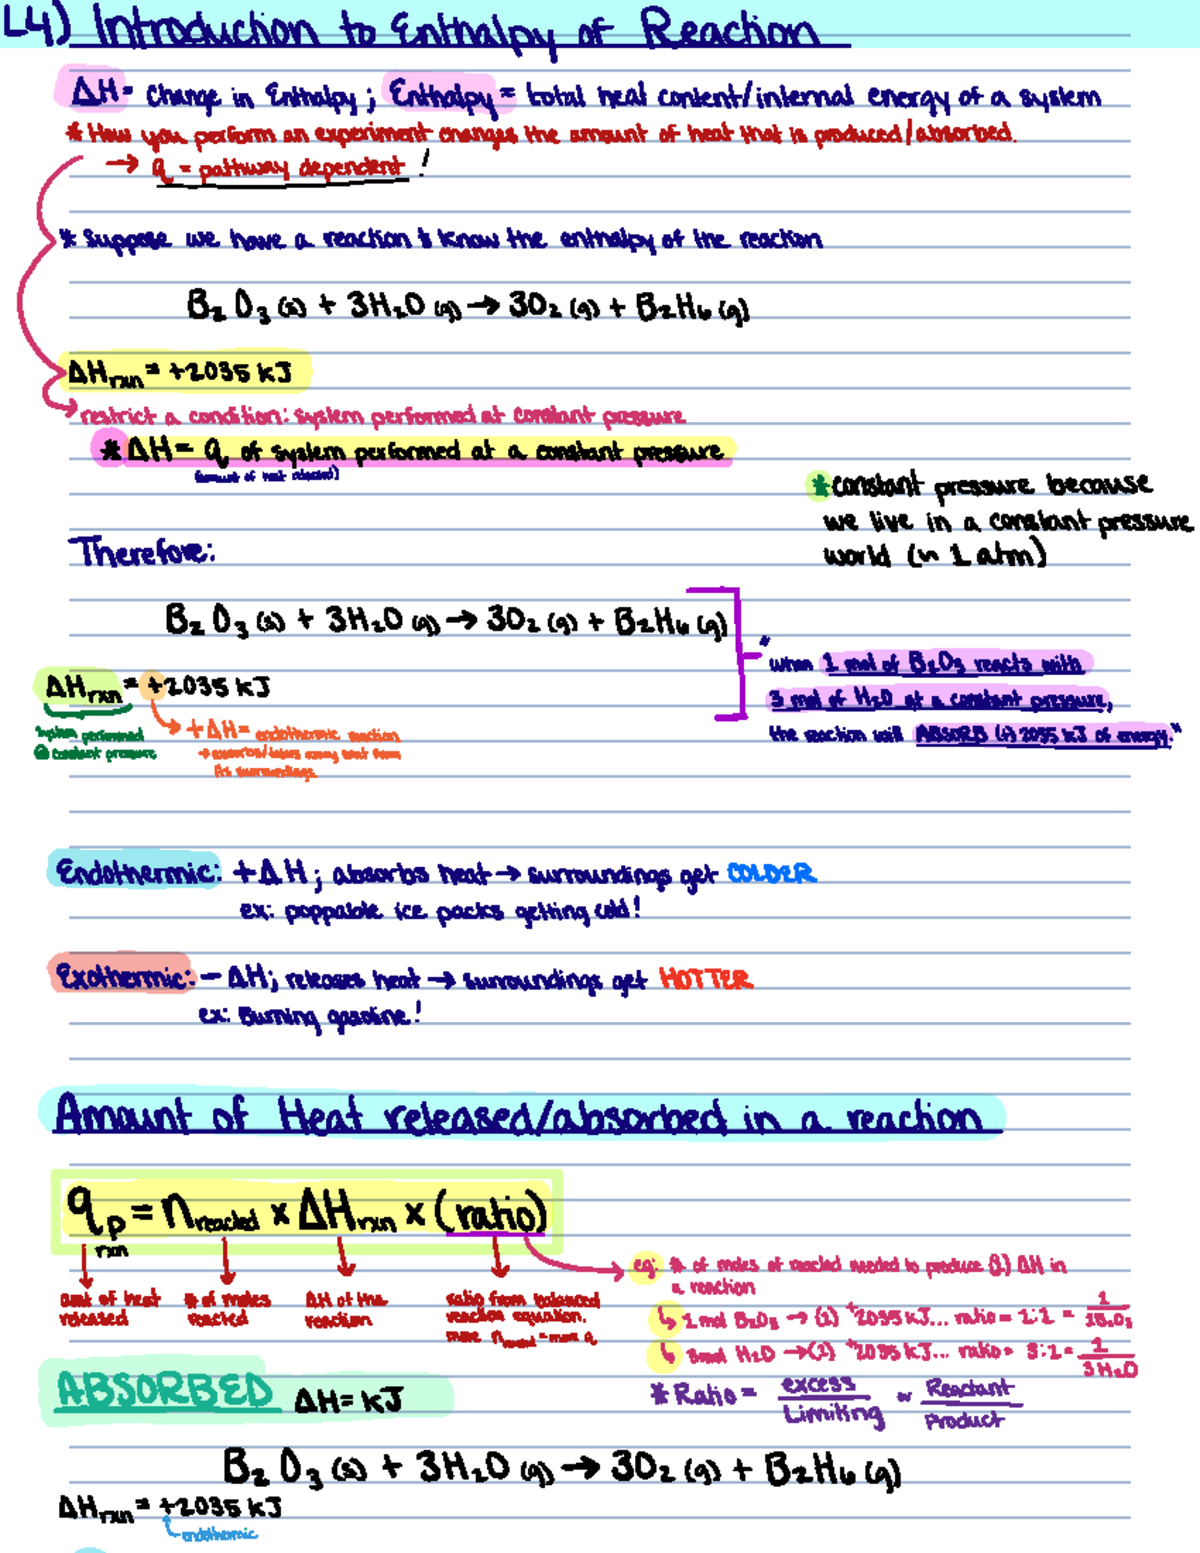 L4) Introduction to Enthalpy of Reaction
ΔH = Change in Enthalpy ; Enthalpy = total heat content/internal energy of a system
* How you perform an experiment changes the amount of heat that is produced/absorbed.
→ q = pathway dependent !
* Suppose we have a reaction & know the enthalpy of the reaction
B₂O₃ (s) + 3H₂O (g) → 3O₂ (g) + B₂H₆ (g)
ΔHrxn = +2035 kJ
restrict a condition: system performed at constant pressure
* ΔH = q of system performed at a constant pressure
(amount of heat released)
* constant pressure because
we live in a constant pressure
world (~ 1 atm)
Therefore:
B₂O₃ (s) + 3H₂O (g) → 3O₂ (g) + B₂H₆ (g)
"when 1 mol of B₂O₃ reacts with
3 mol of H₂O at a constant pressure,
the reaction will ABSORB (+) 2035 kJ of energy."
ΔHrxn = +2035 kJ
system performed
@ constant pressure
→ +ΔH = endothermic reaction
→ absorbs/takes away heat from
its surroundings
Endothermic: +ΔH ; absorbs heat → surroundings get COLDER
ex: poppable ice packs getting cold!
Exothermic: −ΔH; releases heat → surroundings get HOTTER
ex: Burning gasoline!
Amount of Heat released/absorbed in a reaction
qp rxn = nreacted x ΔHrxn x (ratio)
amt of heat
released
# of moles
reacted
ΔH of the
reaction
ratio from balanced
reaction equation.
more nreacted = more q
eg: # of moles of reacted needed to produce (1) ΔH in
a reaction
↳ 1 mol B₂O₃ → (1) +2035 kJ... ratio = 1:1 = 1/1B₂O₃
↳ 3mol H₂O → (1) +2035 kJ... ratio = 3:1 = 1/3H₂O
* Ratio = excess/Limiting ~ Reactant/Product
ABSORBED ΔH = kJ
B₂O₃ (s) + 3H₂O (g) → 3O₂ (g) + B₂H₆ (g)
ΔHrxn = +2035 kJ
endothermic